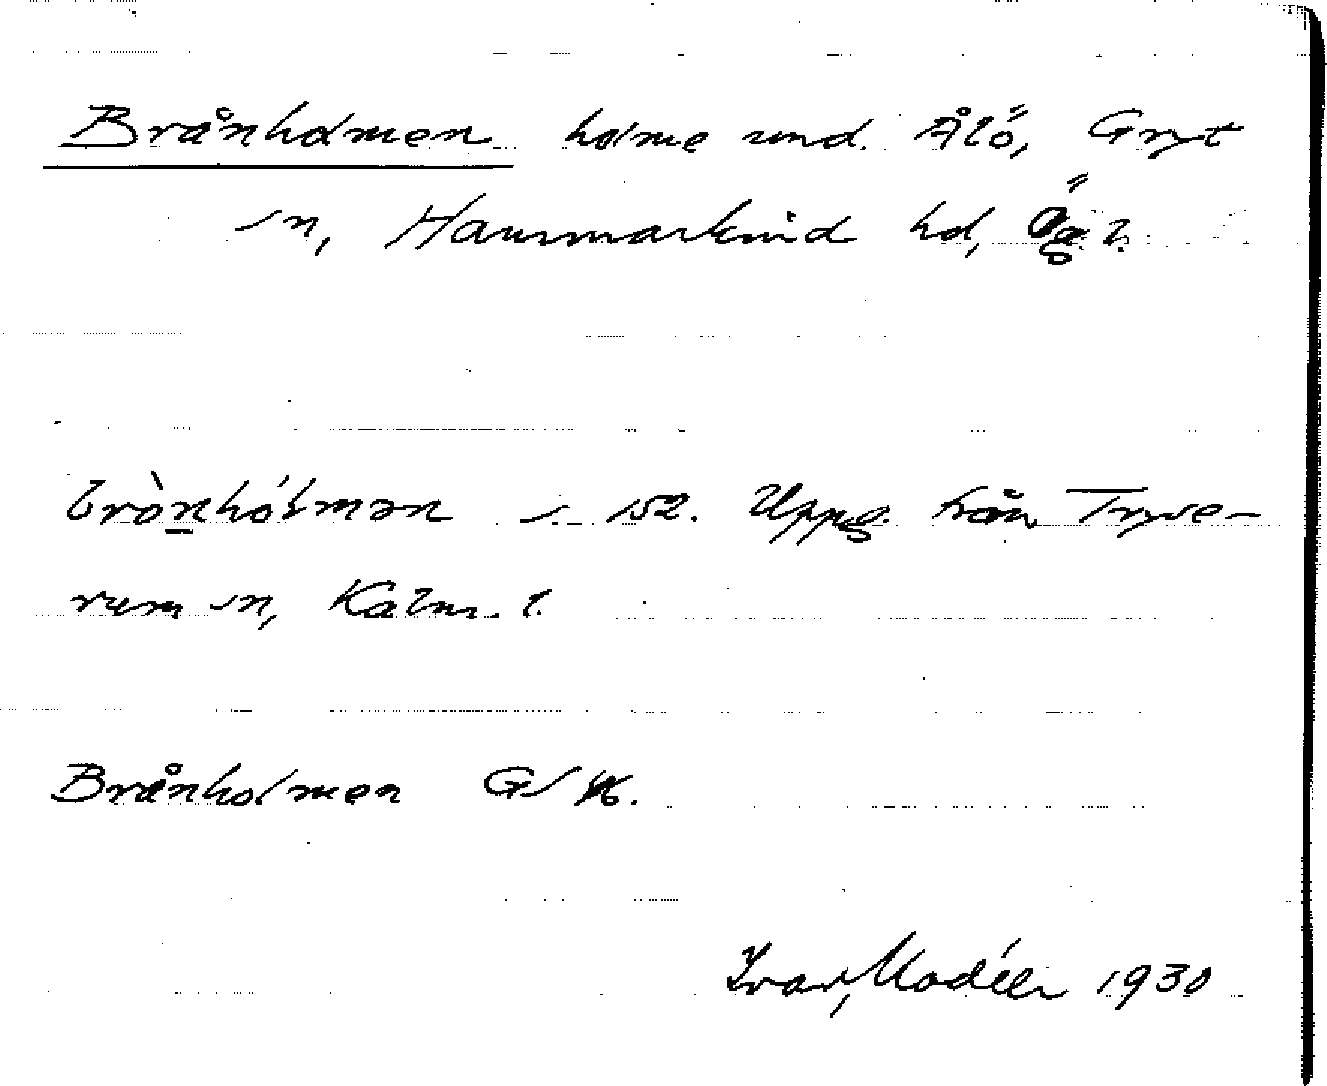 Brånholmen holme und. Ålö, Gryt
sn, Hammarkind hd, Ög. l.
bròn̲hólmən s. 152. Uppg. från Tryse-
rum sn, Kalm. l.
Brånholmen GSK.
Ivar Modéer 1930